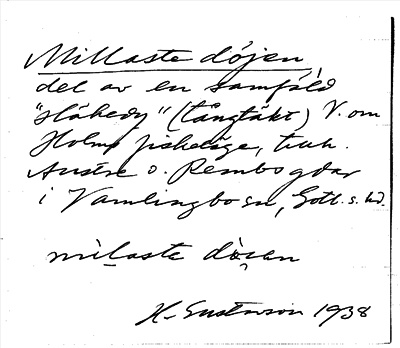 Millaste döjen
del av en samfäld
"slåhedy" (långtäkt) V. om
Holms fiskeläge, till h.
Austre o. Rembogdar
i Vamlingbo sn, Gotl. s. hd.
milaste döien
H. Gustavson 1938